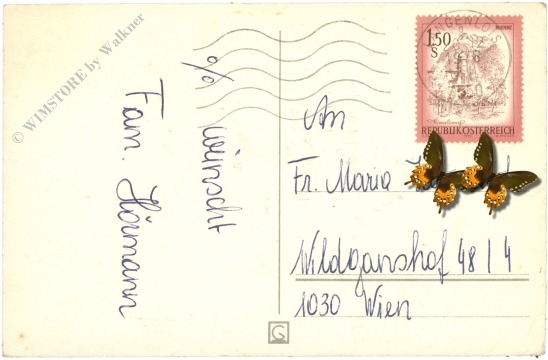 © WIMSTORE by Walkner
% wünscht
Fam. Hörmann
1.50
S
REPUBLIK ÖSTERREICH
An
Fr. Maria
Wildganshof 48/4
1030 Wien